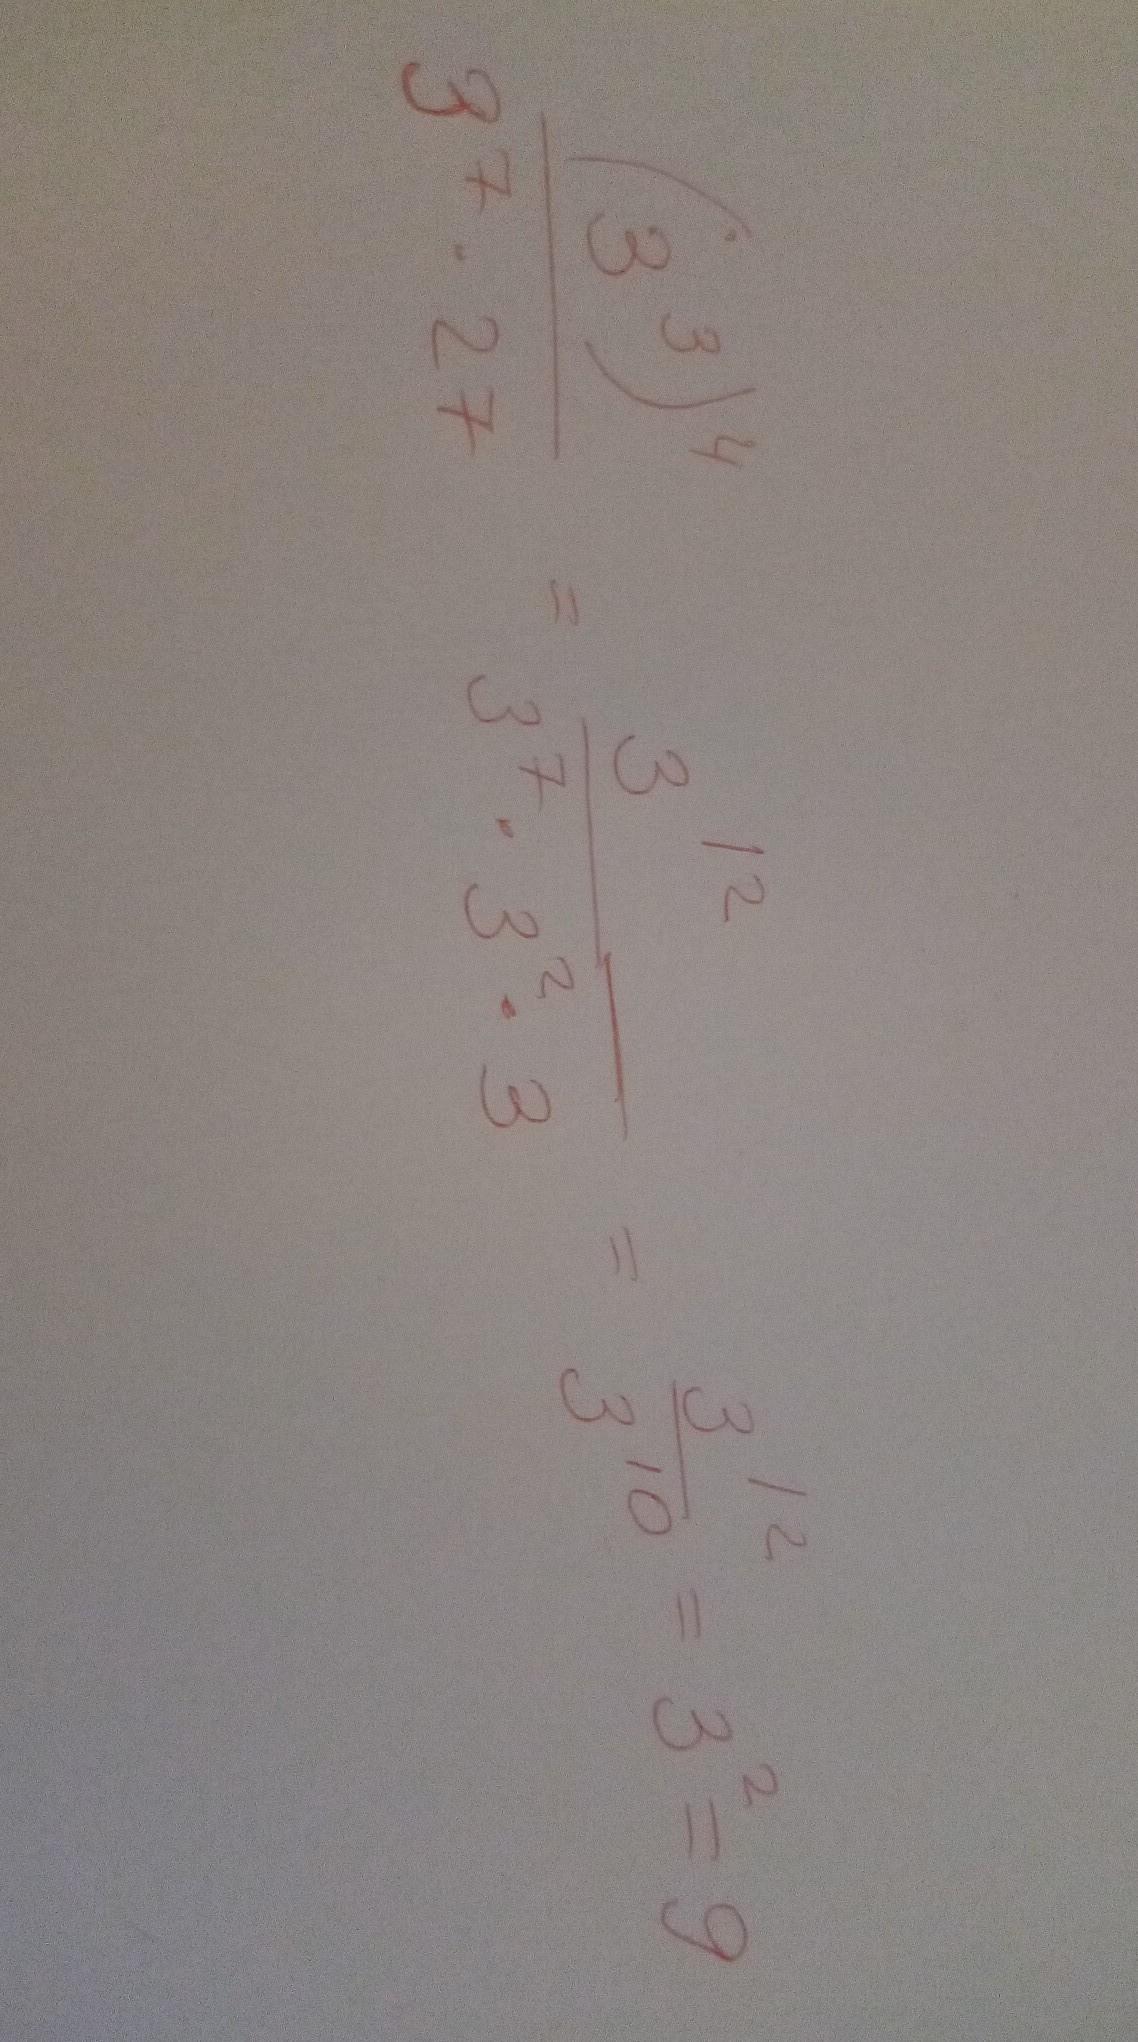 (3³)⁴ / 3⁷ · 27 = 3¹² / 3⁷ · 3² · 3 = 3¹² / 3¹⁰ = 3² = 9